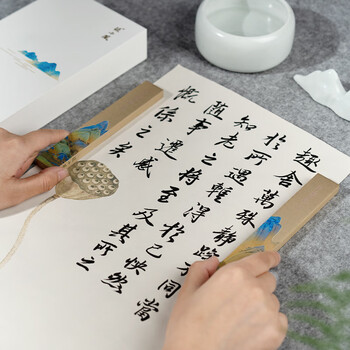 趣舍萬殊靜躁不同當
於所遇暫得於己怏然
知老之將至及其所之
隨事遷感
慨係之矣